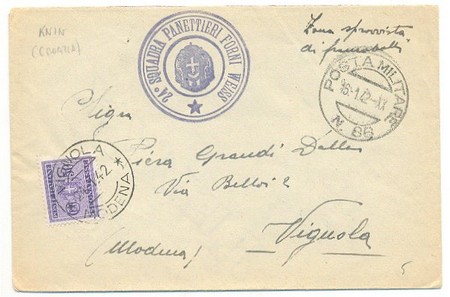 KNIN
(CROATIA)
24° SQUADRA PANETTIERI FORNI WEISS
Zona sprovvista
di francobolli
POSTA MILITARE
16-1.42-XX
N. 86
Sigra
Piera Grandi Dallei
Via Bellvi 2
Vignola
(Modena)
VIGNOLA
42
MODENA
5